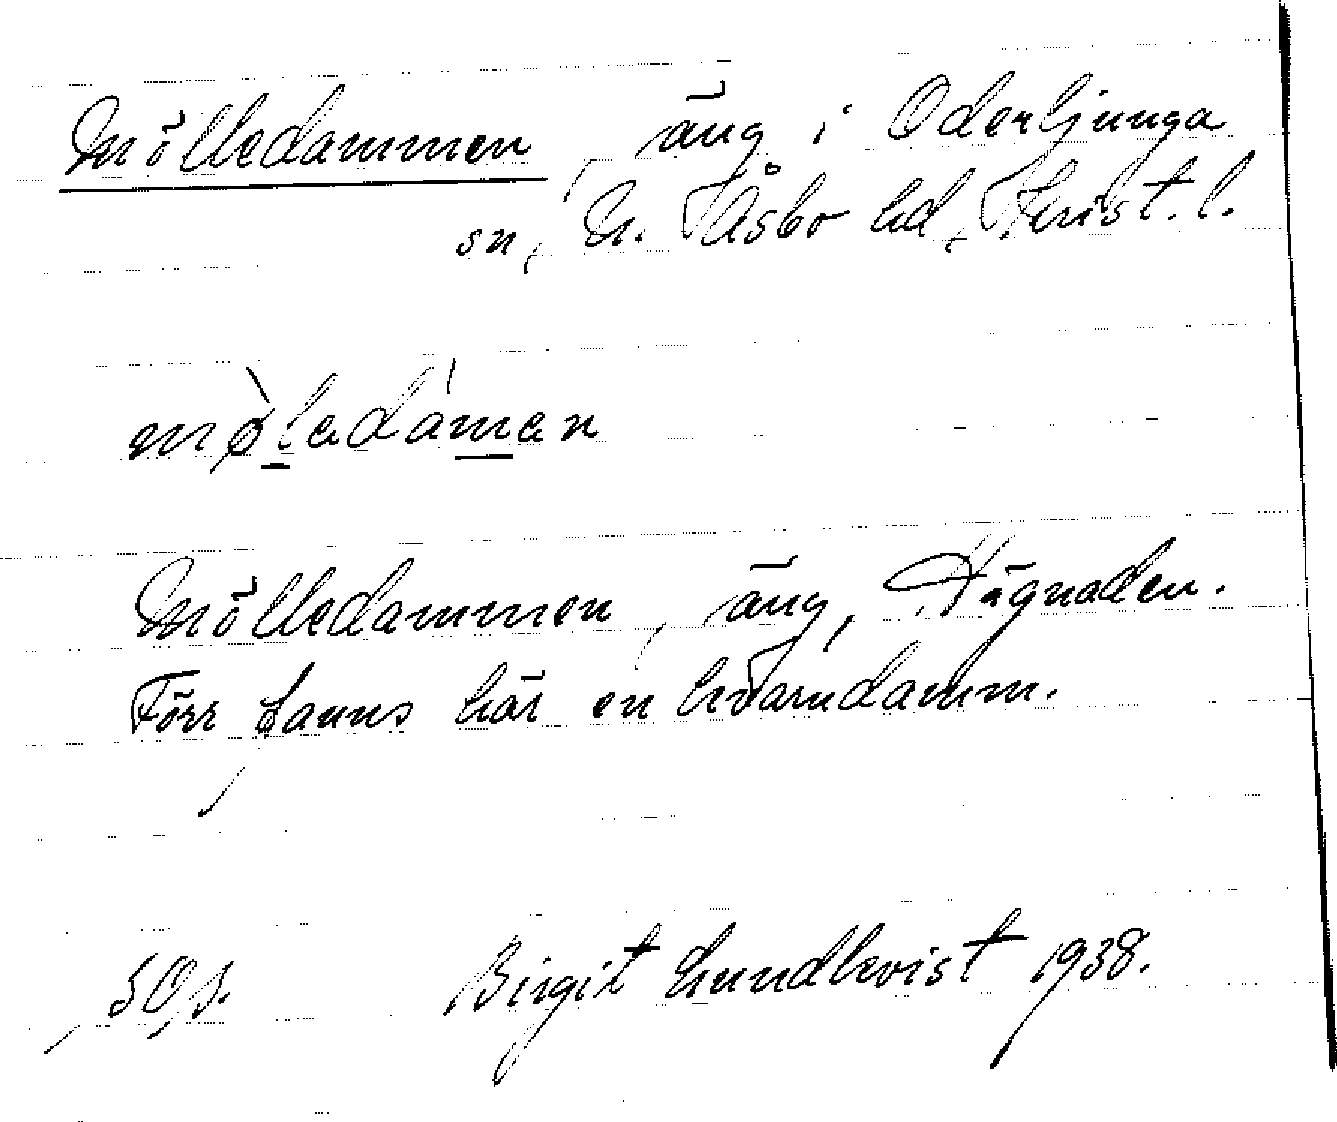 Mölledammen, äng i Oderljunga
sn, N. Åsbo hd, Krist. l.
møledamen
Mölledammen, äng, Hägnaden.
Förr fanns här en kvarndamm.
Birgit Lundkvist 1938.